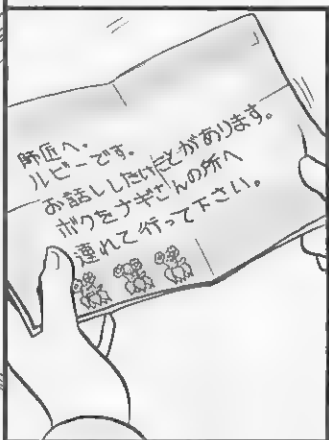 師匠へ。
ルビーです。
お話ししたいことがあります。
ボクをナギさんの所へ
連れて行って下さい。